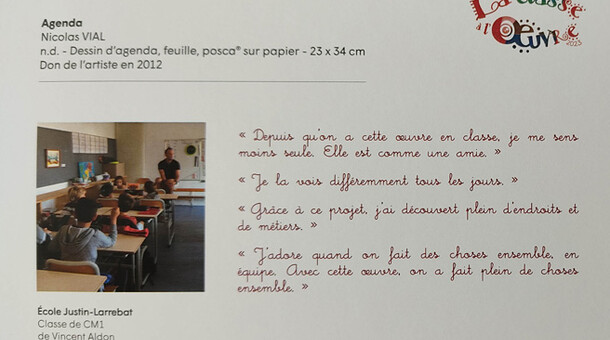 Agenda
Nicolas VIAL
n.d. - Dessin d'agenda, feuille, posca® sur papier - 23 x 34 cm
Don de l'artiste en 2012
La classe
à l'Oeuvre
2023
« Depuis qu'on a cette œuvre en classe, je me sens
moins seule. Elle est comme une amie. »
« Je la vois différemment tous les jours. »
« Grâce à ce projet, j'ai découvert plein d'endroits et
de métiers. »
« J'adore quand on fait des choses ensemble, en
équipe. Avec cette œuvre, on a fait plein de choses
ensemble. »
École Justin-Larrebat
Classe de CM1
de Vincent Aldon